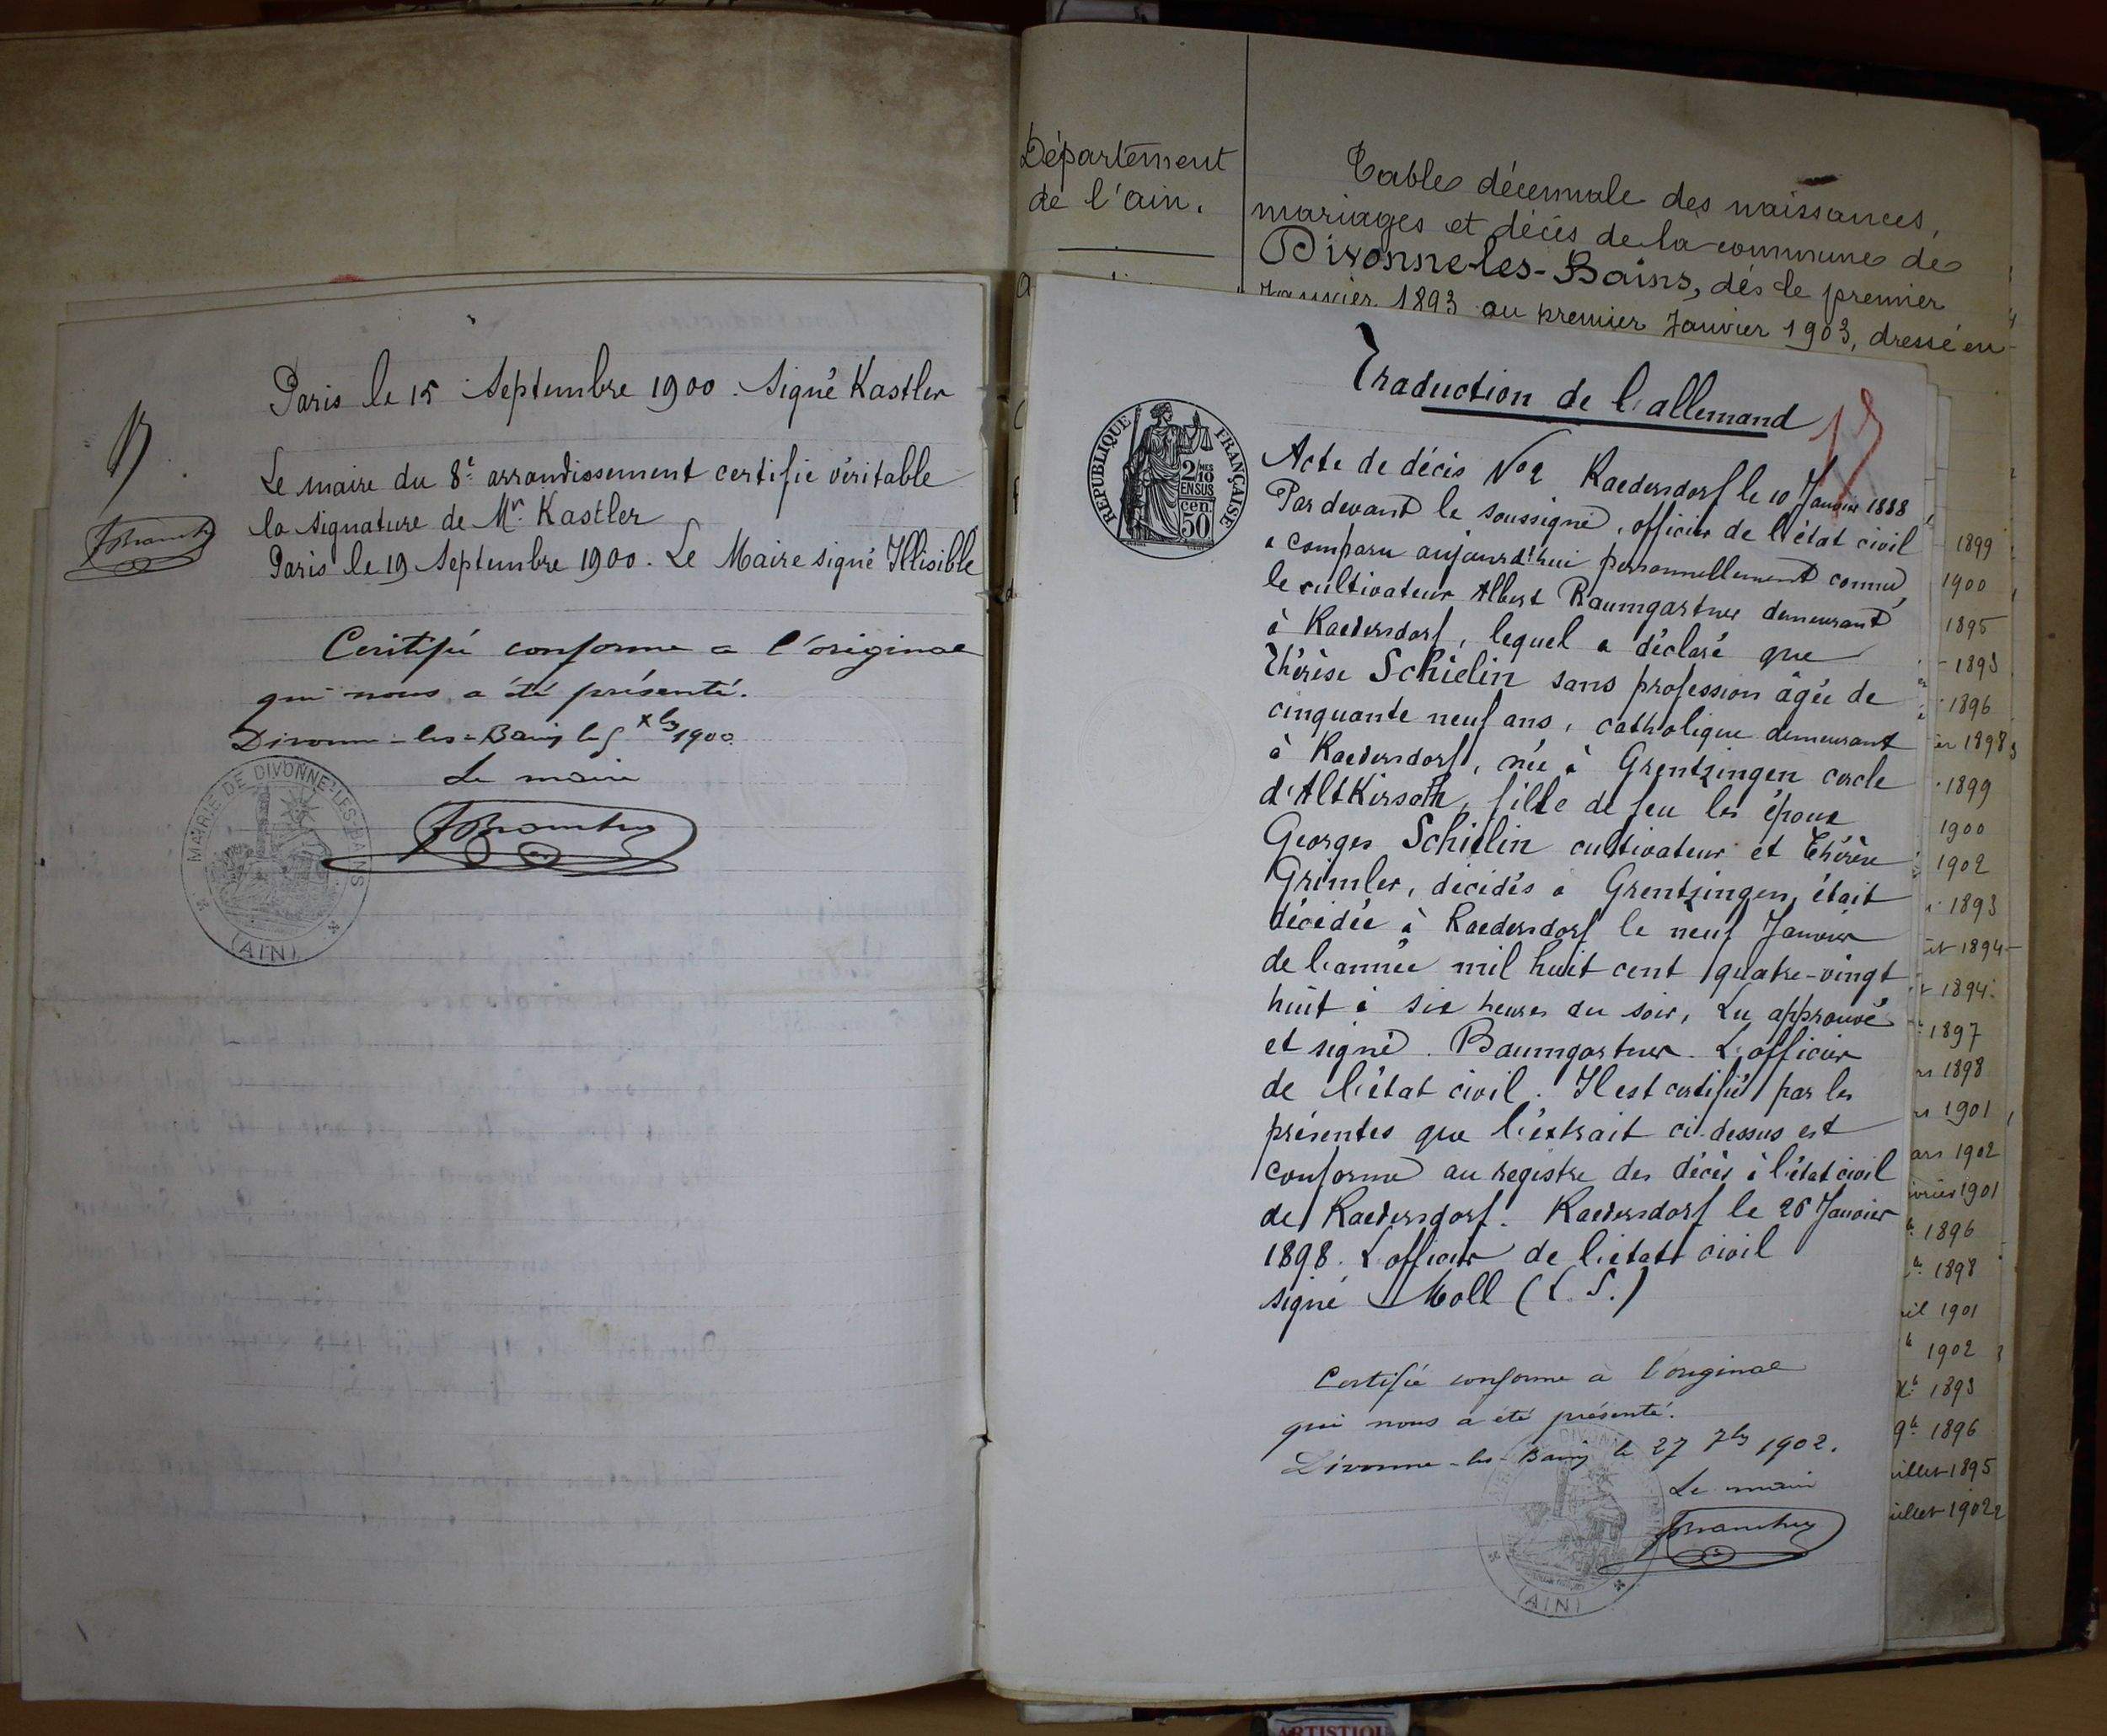 Paris le 15 Septembre 1900. Signé Kastler
Le maire du 8e arrondissement certifie véritable
la signature de Mr. Kastler
Paris le 19 Septembre 1900. Le Maire signé Illisible
Certifié conforme a l'original
qui nous a été présenté.
Divonne-les-Bains le 5 Xbre 1900.
Le maire
MAIRIE DE DIVONNE-LES-BAINS
(AIN)
Département
de l'ain.
Table décennale des naissances,
mariages et décès de la commune de
Divonne-les-Bains, dès le premier
Janvier 1893 au premier Janvier 1903, dressé en
Traduction de l'allemand
REPUBLIQUE FRANÇAISE
2/10
EN SUS
cen.
50
Acte de décès No 2 Raedersdorf le 10 Janvier 1888
Par devant le soussigné, officier de l'état civil
a comparu aujourd'hui personnellement connu,
le cultivateur Albert Baumgartner demeurant
à Raedersdorf, lequel a déclaré que
Thérèse Schielin sans profession âgée de
cinquante neuf ans, catholique demeurant
à Raedersdorf, née à Grentzingen cercle
d'AltKirsch, fille de feu les époux
Georges Schielin cultivateur et Thérèse
Grimler, décédés à Grentzingen, était
décédée à Raedersdorf le neuf Janvier
de l'année mil huit cent quatre-vingt
huit à six heures du soir, Lu approuvé
et signé. Baumgartner. L'officier
de l'état civil. Il est certifié par les
présentes que l'extrait ci-dessus est
conforme au registre des décès à l'état civil
de Raedersdorf. Raedersdorf le 26 Janvier
1898. L'officier de l'état civil
signé Moll (L.S.)
Certifié conforme à l'original
qui nous a été présenté.
Divonne-les-Bains le 27 7bre 1902.
Le maire
(AIN)
1899
1900
1895
1893
1896
1898
1899
1900
1902
1893
1894
1894
1897
1898
1901
1902
1901
1896
1898
1901
1902
1893
1896
1895
1902
ARTISTIQU